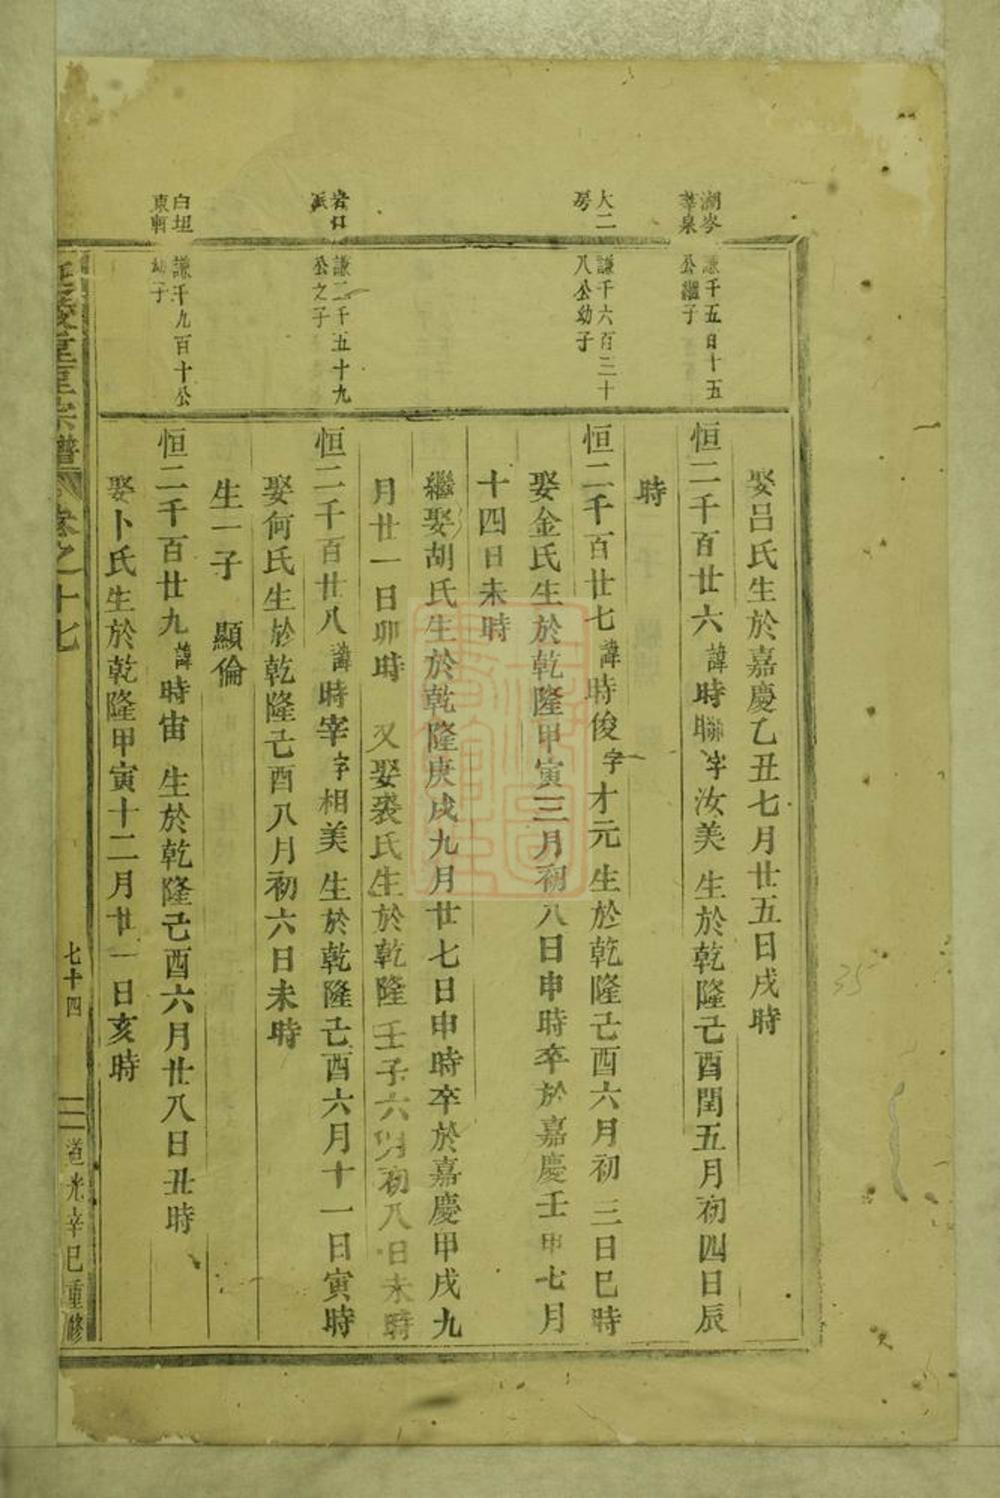 湖岑
莘泉
謙千五百十五
公繼子
大二
房
謙千六百三十
八公幼子
岩口
派
謙二千五十九
公之子
白坦
東軒
謙千九百十公
幼子
娶呂氏生於嘉慶乙丑七月廿五日戌時
恒二千百廿六諱時聯字汝美 生於乾隆己酉閏五月初四日辰
時
恒二千百廿七諱時俊字才元 生於乾隆己酉六月初三日巳時
娶金氏生於乾隆甲寅三月初八日申時卒於嘉慶壬申七月
十四日未時
繼娶胡氏生於乾隆庚戌九月廿七日申時卒於嘉慶甲戌九
月廿一日卯時 又娶裘氏生於乾隆壬子六月初八日未時
恒二千百廿八諱時宰字相美 生於乾隆己酉六月十一日寅時
娶何氏生於乾隆己酉八月初六日未時
生一子 顯倫
恒二千百廿九諱時宙 生於乾隆己酉六月廿八日丑時
娶卜氏生於乾隆甲寅十二月廿一日亥時
宗譜 卷之十七
七十四
道光辛巳重修